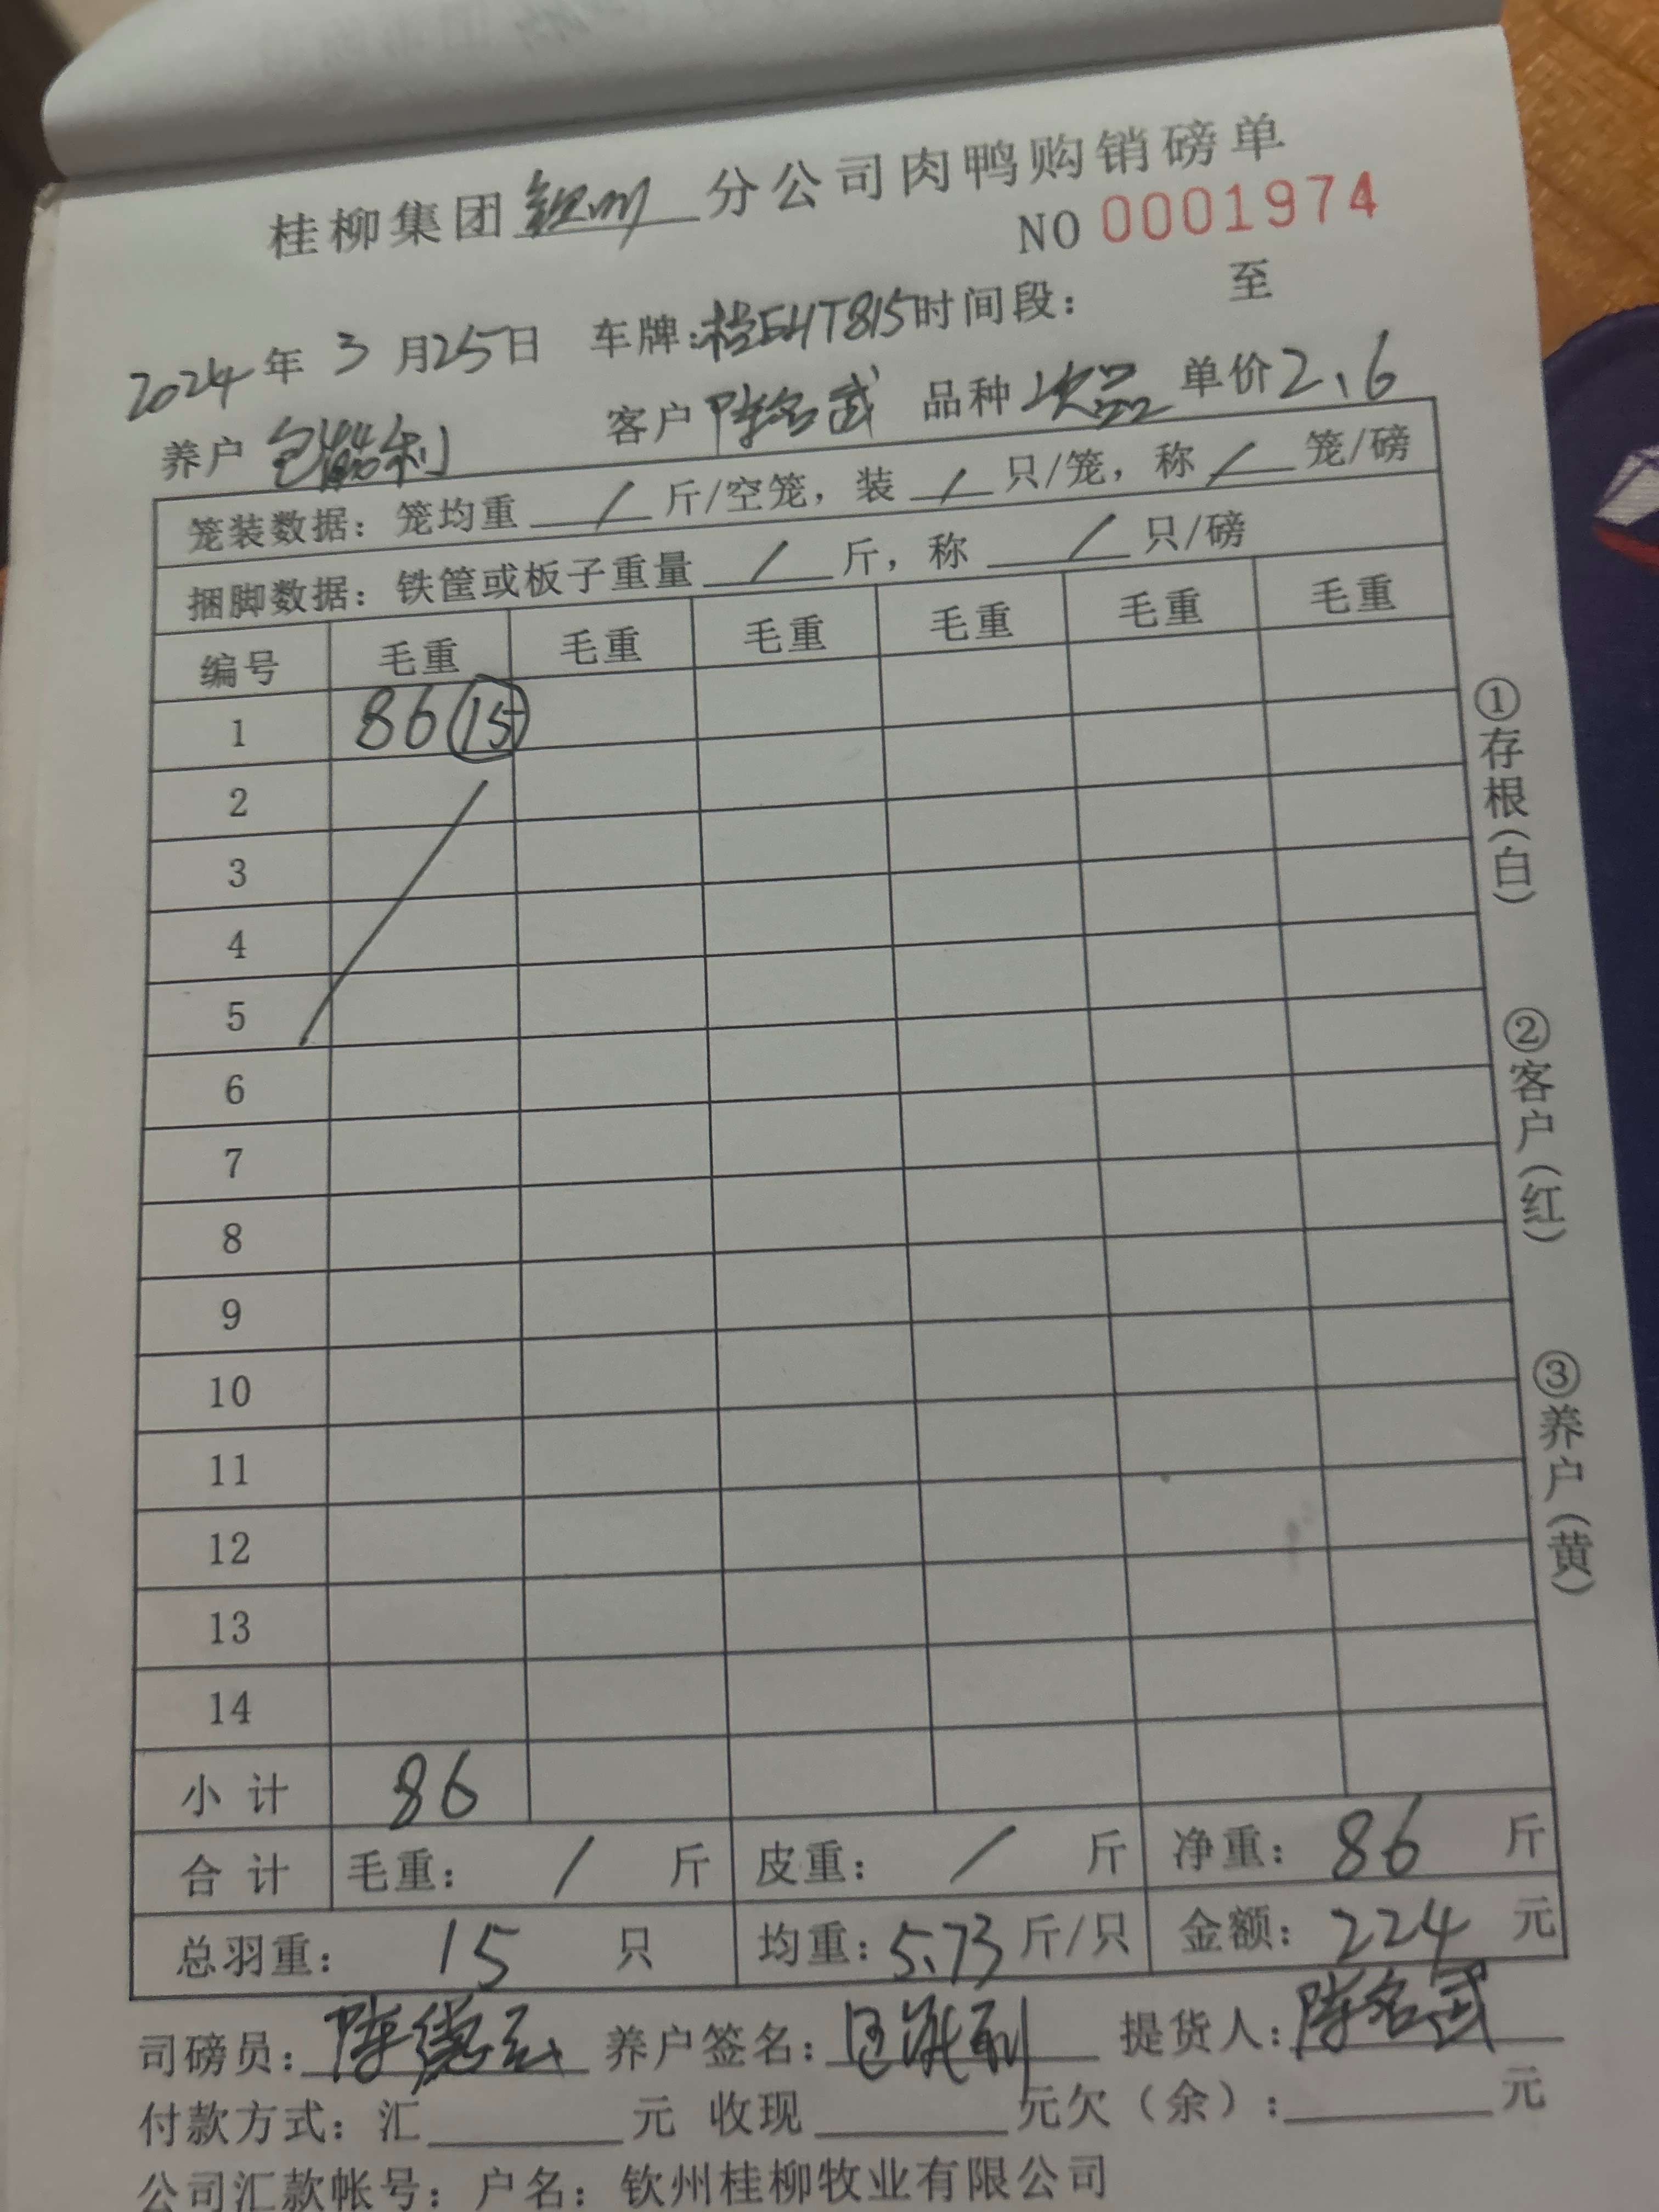 桂柳集团钦州分公司肉鸭购销磅单
NO 0001974
2024年3月25日 车牌:桂EHT815时间段: 至
养户 客户 陈名武 品种 次品 单价2.6
笼装数据: 笼均重 / 斤/空笼, 装 / 只/笼, 称 / 笼/磅
捆脚数据: 铁筐或板子重量 / 斤, 称 / 只/磅
编号 毛重 毛重 毛重 毛重 毛重 毛重
1 86 15
2
3
4
5
6
7
8
9
10
11
12
13
14
小计 86
合计 毛重: / 斤 皮重: / 斤 净重: 86 斤
总羽重: 15 只 均重: 5.73 斤/只 金额: 224 元
司磅员: 陈 养户签名: 提货人: 陈名武
付款方式: 汇 元 收现 元欠(余): 元
公司汇款帐号: 户名: 钦州桂柳牧业有限公司
①存根(白)
②客户(红)
③养户(黄)